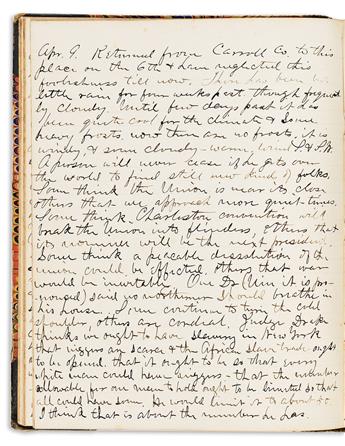 Apr. 9. Returned from Carroll Co. to this
place on the 6th & have neglected this
foolishness till now. There has been but
little rain for four weeks past though
by cloudy. Until few days past it has
been quite cool for the climate & some
heavy frosts. now there are no frosts, it is
windy & some cloudy - warm, wind S & S.W.
A person will never cease if he gets over
the world to find still new kind of folks.
Some think the Union is near its close
others that we approach more quiet times.
Some think Charleston convention will
break the Union into flinders, others that
its nominee will be the next president.
Some think a peaceable dissolution of the
union could be effected, others that war
would be inevitable. One Dr. it is pro-
nounced) said no northerner should breathe in
his house. Some continue to turn the cold
shoulder, others are cordial. Judge
thinks we ought to have slavery in New York
that niggers are scarce & the African slave trade ought
to be opened, that it ought to be so that every
white man could have niggers - that the number
allowable for one man to hold ought to be limited so that
all could have some. He would limit it to about
I think that is about the number he has